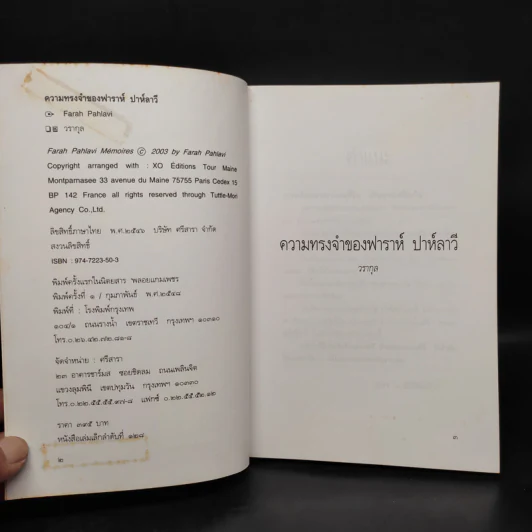 ความทรงจำของฟาราห์ ปาห์ลาวี
Farah Pahlavi
วรากุล
Farah Pahlavi Mémoires © 2003 by Farah Pahlavi
Copyright arranged with : XO Éditions Tour Maine
Montparnasee 33 avenue du Maine 75755 Paris Cedex 15
BP 142 France all rights reserved through Tuttle-Mori
Agency Co.,Ltd.
ลิขสิทธิ์ภาษาไทย พ.ศ.๒๕๔๖ บริษัท ศรีสารา จำกัด
สงวนลิขสิทธิ์
ISBN : 974-7223-50-3
พิมพ์ครั้งแรกในนิตยสาร พลอยแกมเพชร
พิมพ์ครั้งที่ ๑ / กุมภาพันธ์ พ.ศ.๒๕๔๘
พิมพ์ที่ : โรงพิมพ์กรุงเทพ
๑๐๔/๑ ถนนรางน้ำ เขตราชเทวี กรุงเทพฯ ๑๐๓๑๐
โทร.๐.๒๖.๔๒.๗๒.๘๑-๘
จัดจำหน่าย : ศรีสารา
๒๓ อาคารชาร์มส ซอยชิดลม ถนนเพลินจิต
แขวงลุมพินี เขตปทุมวัน กรุงเทพฯ ๑๐๓๓๐
โทร.๐.๒๒.๕๕.๕๕.๙๗-๘ แฟกซ์ ๐.๒๒.๕๕.๕๓.๑๒
ราคา ๓๙๕ บาท
หนังสือเล่มเล็กลำดับที่ ๑๒๘
๒
ความทรงจำของฟาราห์ ปาห์ลาวี
วรากุล
๓